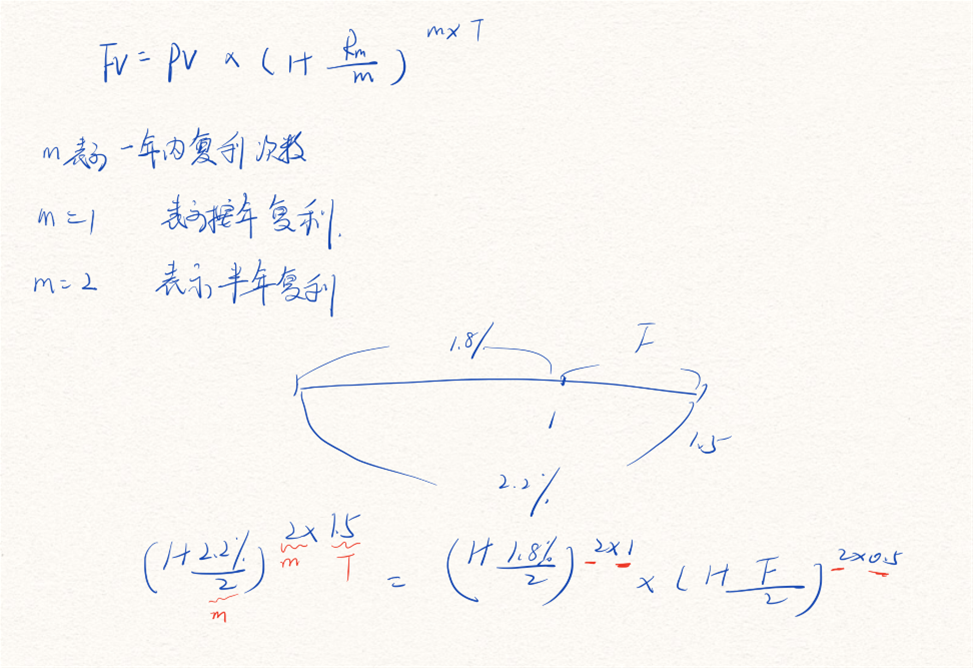 FV = PV × (1+ Rm/m)^m×T
m表示一年内复利次数
m=1 表示按年复利.
m=2 表示半年复利
1.8% F
1 1.5
2.2%
(1+ 2.2%/2)^2×1.5 = (1+ 1.8%/2)^2×1 × (1+ F/2)^2×0.5
m T
m